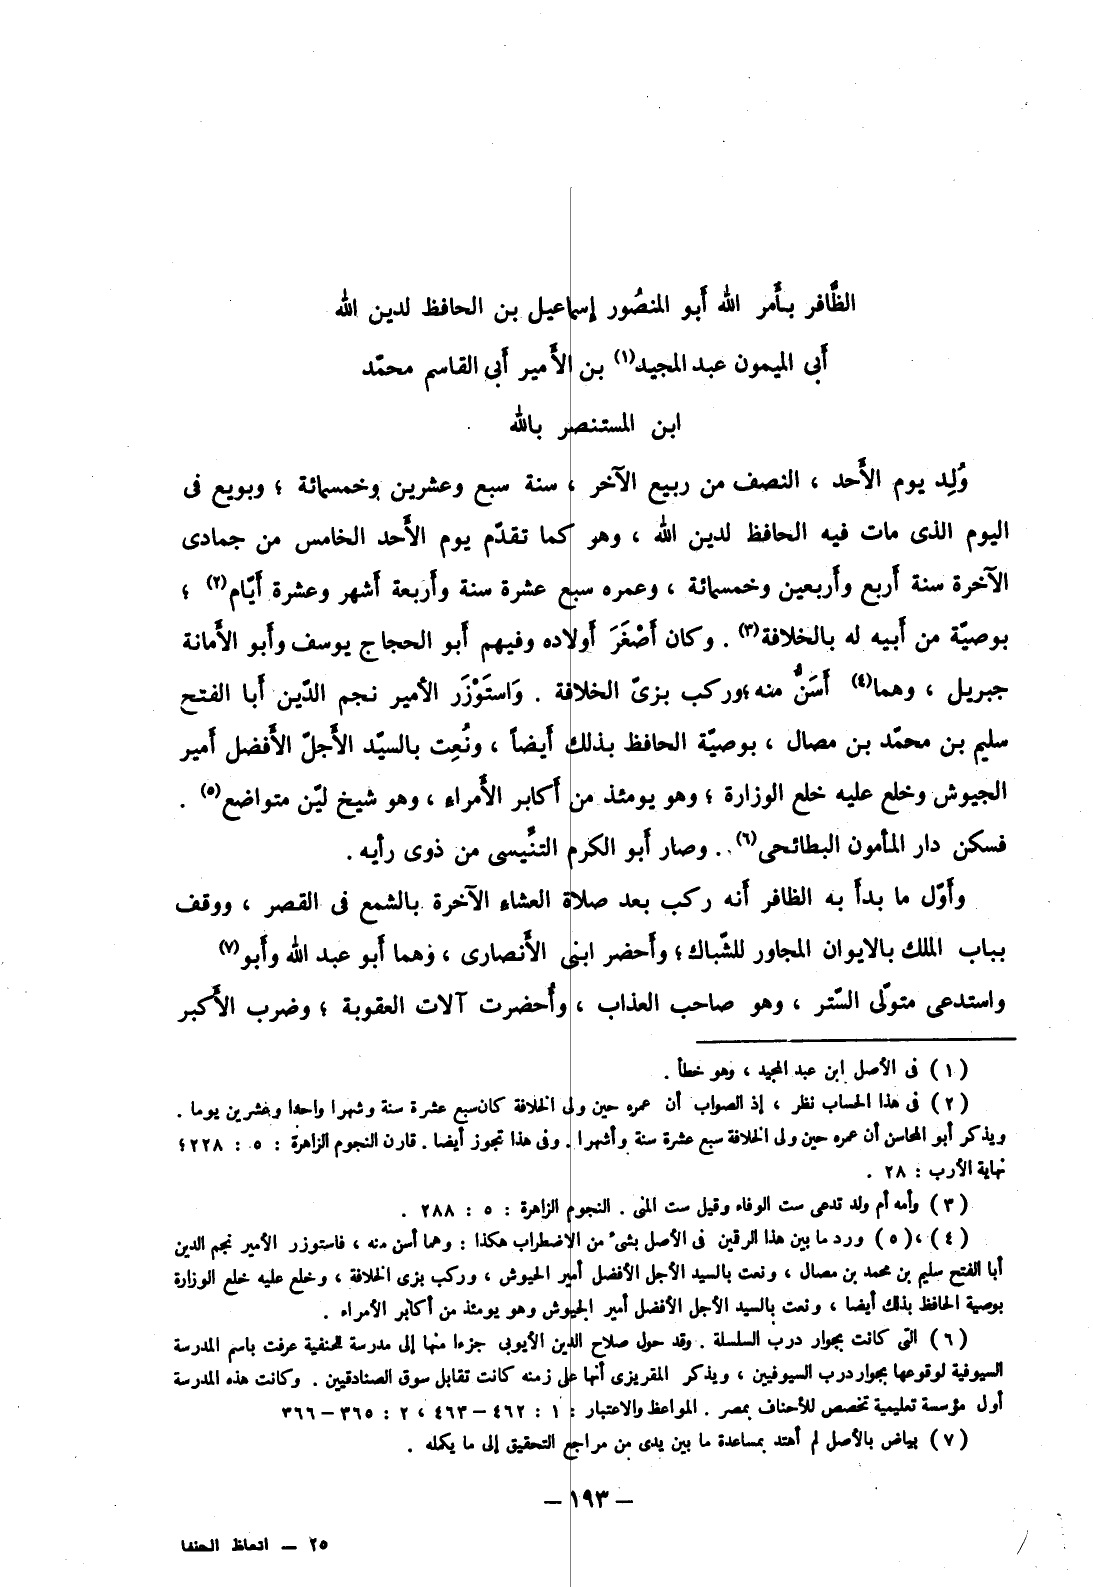 الظَّافر بأَمر الله أَبو المنصُور إسماعيل بن الحافظ لدين الله
أَبى الميمون عبد المجيد(١) بن الأَمير أَبى القاسم محمّد
ابن المستنصر بالله
وُلِد يوم الأَحد ، النصف من ربيع الآخر ، سنة سبع وعشرين وخمسمائة ؛ وبويع فى
اليوم الذى مات فيه الحافظ لدين الله ، وهو كما تقدّم يوم الأَحد الخامس من جمادى
الآخرة سنة أَربع وأَربعين وخمسمائة ، وعمره سبع عشرة سنة وأَربعة أَشهر وعشرة أَيّام(٢) ؛
بوصيّة من أَبيه له بالخلافة(٣) . وكان أَصْغَرَ أَولاده وفيهم أَبو الحجاج يوسف وأَبو الأَمانة
جبريل ، وهما(٤) أَسَنُّ منه ؛ وركب بزىّ الخلافة . وَاستَوْزَر الأمير نجم الدّين أَبا الفتح
سليم بن محمّد بن مصال ، بوصيّة الحافظ بذلك أَيضاً ، ونُعِت بالسيّد الأَجلّ الأَفضل أَمير
الجيوش وخلع عليه خلع الوزارة ؛ وهو يومئذ من أَكابر الأُمراء ، وهو شيخ ليّن متواضع(٥) .
فسكن دار المأمون البطائحى(٦) . وصار أَبو الكرم التنِّيسى من ذوى رأيه .
وأَوّل ما بدأَ به الظافر أَنه ركب بعد صلاة العشاء الآخرة بالشمع فى القصر ، ووقف
بباب الملك بالايوان المجاور للشّباك ؛ وأَحضر ابنى الأَنصارى ، وهما أَبو عبد الله وأَبو(٧)
واستدعى متولّى السّتر ، وهو صاحب العذاب ، وأُحضرت آلات العقوبة ؛ وضرب الأَكبر
(١) فى الأصل ابن عبد المجيد ، وهو خطأ .
(٢) فى هذا الحساب نظر ، إذ الصواب أن عمره حين ولى الخلافة كان سبع عشرة سنة وشهرا واحدا وعشرين يوما .
ويذكر أبو المحاسن أن عمره حين ولى الخلافة سبع عشرة سنة وأشهرا . وفى هذا تجوز أيضا . قارن النجوم الزاهرة : ٥ : ٢٢٨ ؛
نهاية الأرب : ٢٨ .
(٣) وأمه أم ولد تدعى ست الوفاء وقيل ست المنى . النجوم الزاهرة : ٥ : ٢٨٨ .
(٤) ، (٥) ورد ما بين هذا الرقين فى الأصل بشىء من الاضطراب هكذا : وهما أسن منه ، فاستوزر الأمير نجم الدين
أبا الفتح سليم بن محمد بن مصال ، ونعت بالسيد الأجل الأفضل أمير الجيوش ، وركب بزى الخلافة ، وخلع عليه خلع الوزارة
بوصية الحافظ بذلك أيضا ، ونعت بالسيد الأجل الأفضل أمير الجيوش وهو يومئذ من أكابر الأمراء .
(٦) التى كانت بجوار درب السلسلة . وقد حول صلاح الدين الأيوبى جزءا منها إلى مدرسة للحنفية عرفت باسم المدرسة
السيوفية لوقوعها بجوار درب السيوفيين ، ويذكر المقريزى أنها على زمنه كانت تقابل سوق الصنادقيين . وكانت هذه المدرسة
أول مؤسسة تعليمية تخصص للأحناف بمصر . المواعظ والاعتبار : ١ : ٤٦٢ – ٤٦٣ ، ٢ : ٣٦٥ – ٣٦٦
(٧) بياض بالأصل لم أهتد بمساعدة ما بين يدى من مراجع التحقيق إلى ما يكمله .
– ١٩٣ –
٢٥ – اتعاظ الحنفا